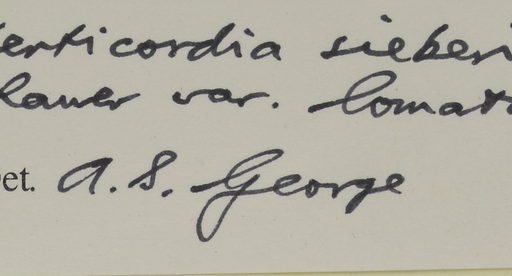 erticordia sieberi
lauer var. lomat
et. A. S. George